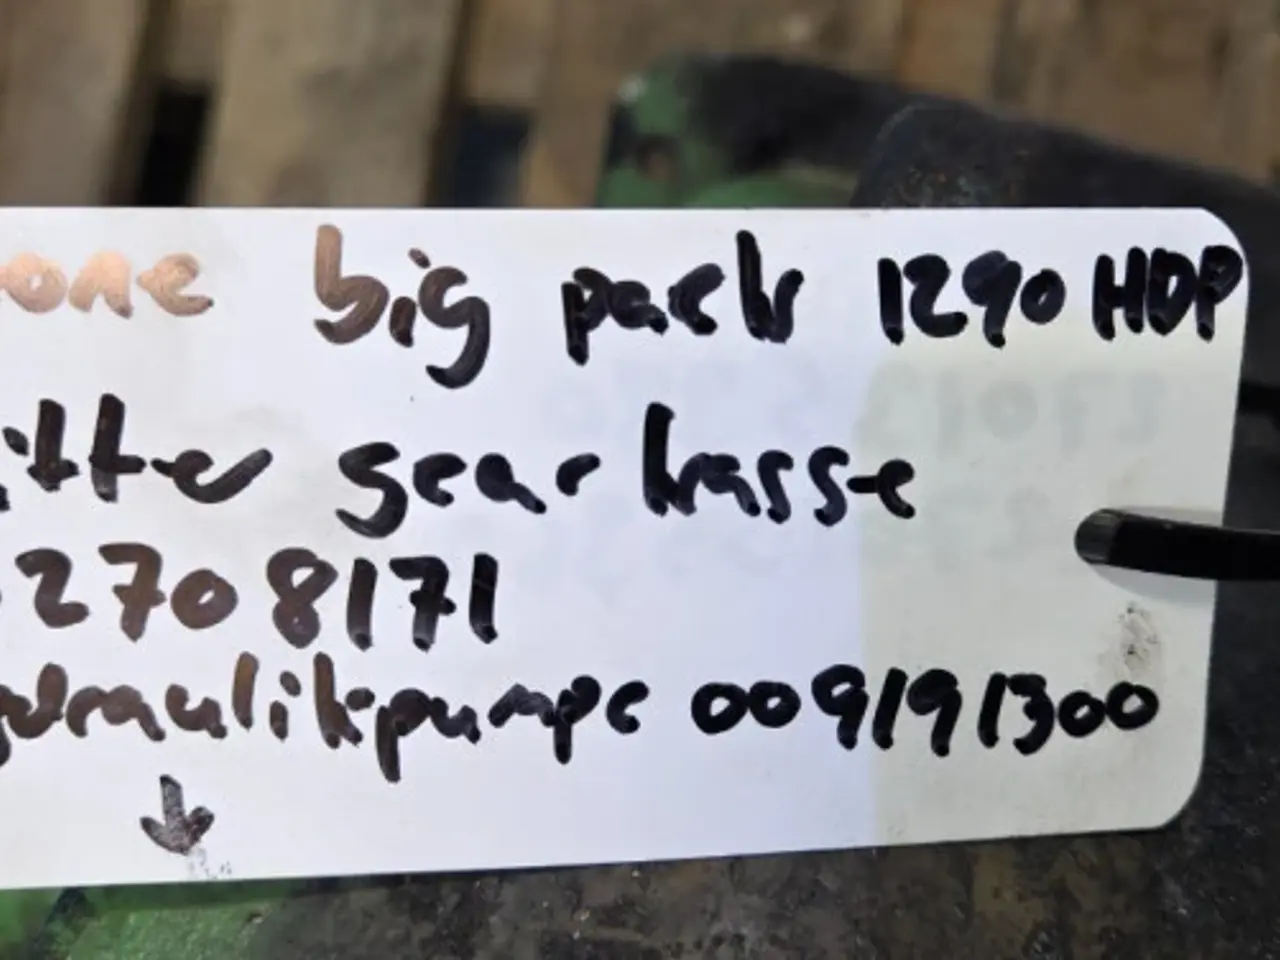 one big pack 1290 HDP
itter gearkasse
2708171
ydraulikpumpe 009191300